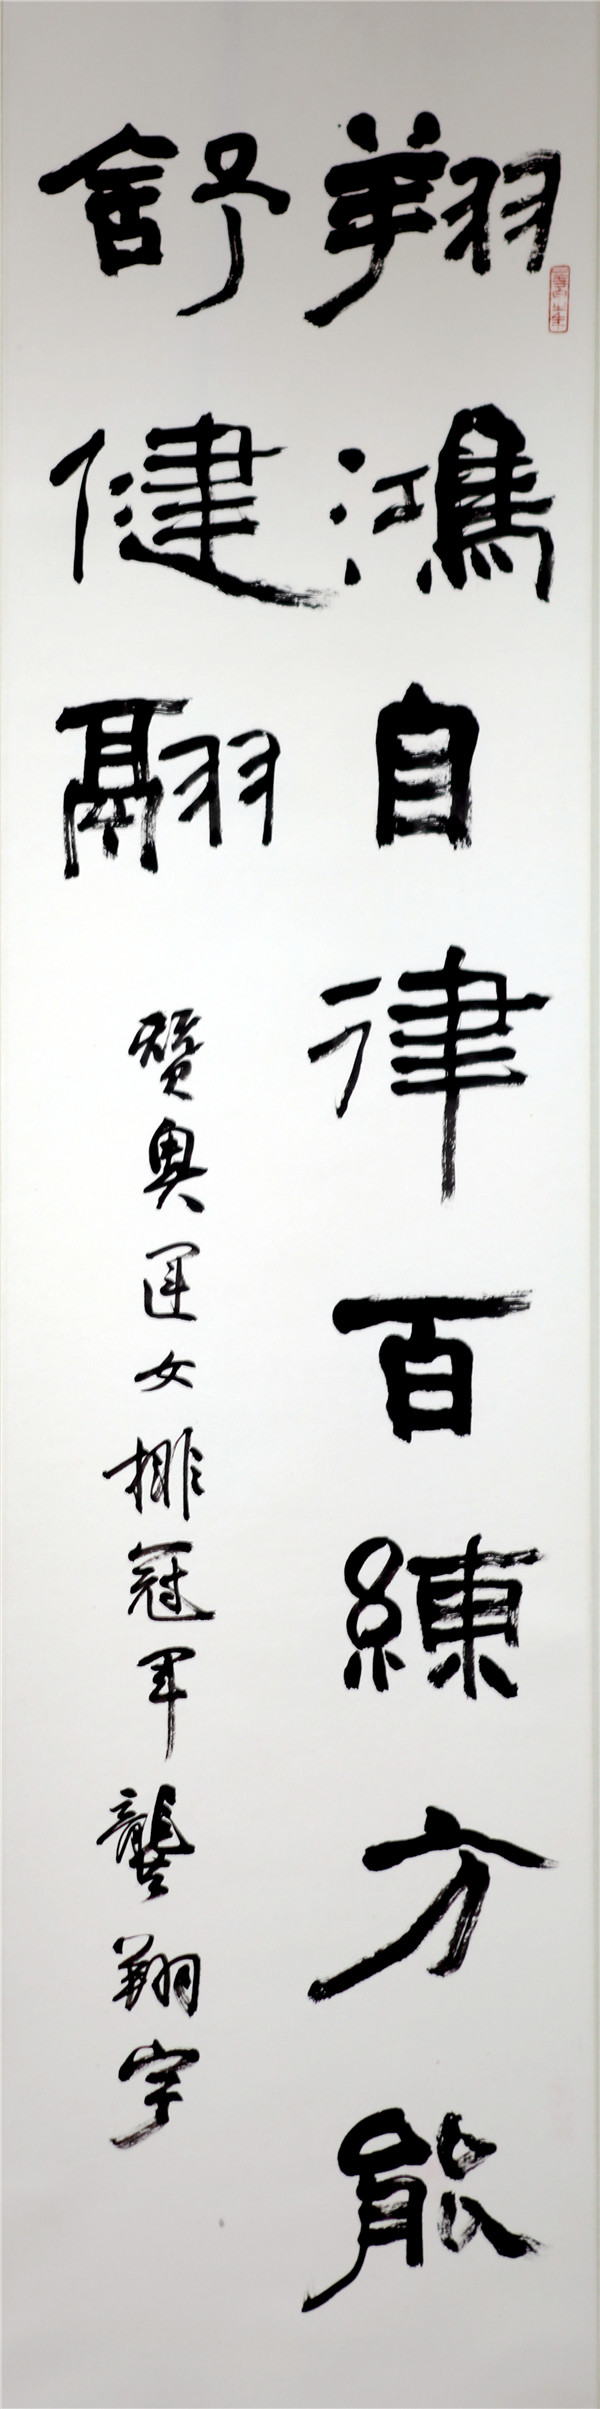 翔鴻自律百練方能
舒健翮
贊奥運女排冠軍龔翔宇